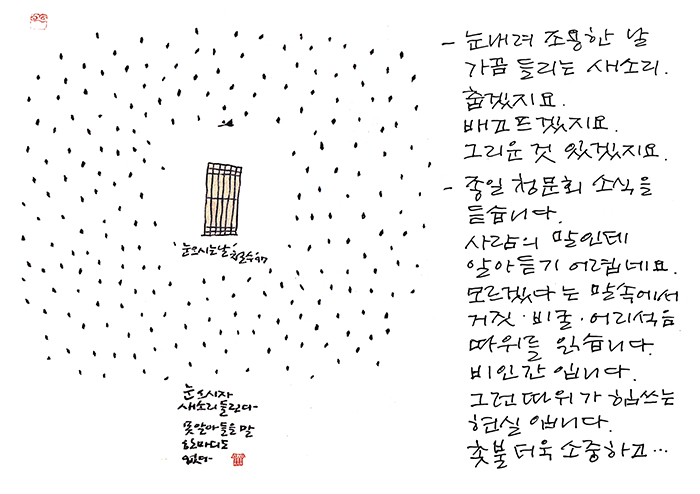 눈오시는날 철수 97
눈오시자
새소리 들린다-
못알아들을 말
한마디도
없다-
- 눈내려 조용한 날
가끔 들리는 새소리.
춥겠지요.
배고프겠지요.
그리운 것 있겠지요.
- 종일 청문회 소식을
듣습니다.
사람의 말인데
알아듣기 어렵네요.
모르겠다는 말속에서
거짓·비굴·어리석음
따위를 읽습니다.
비인간입니다.
그런 따위가 힘쓰는
현실입니다.
촛불 더욱 소중하고…